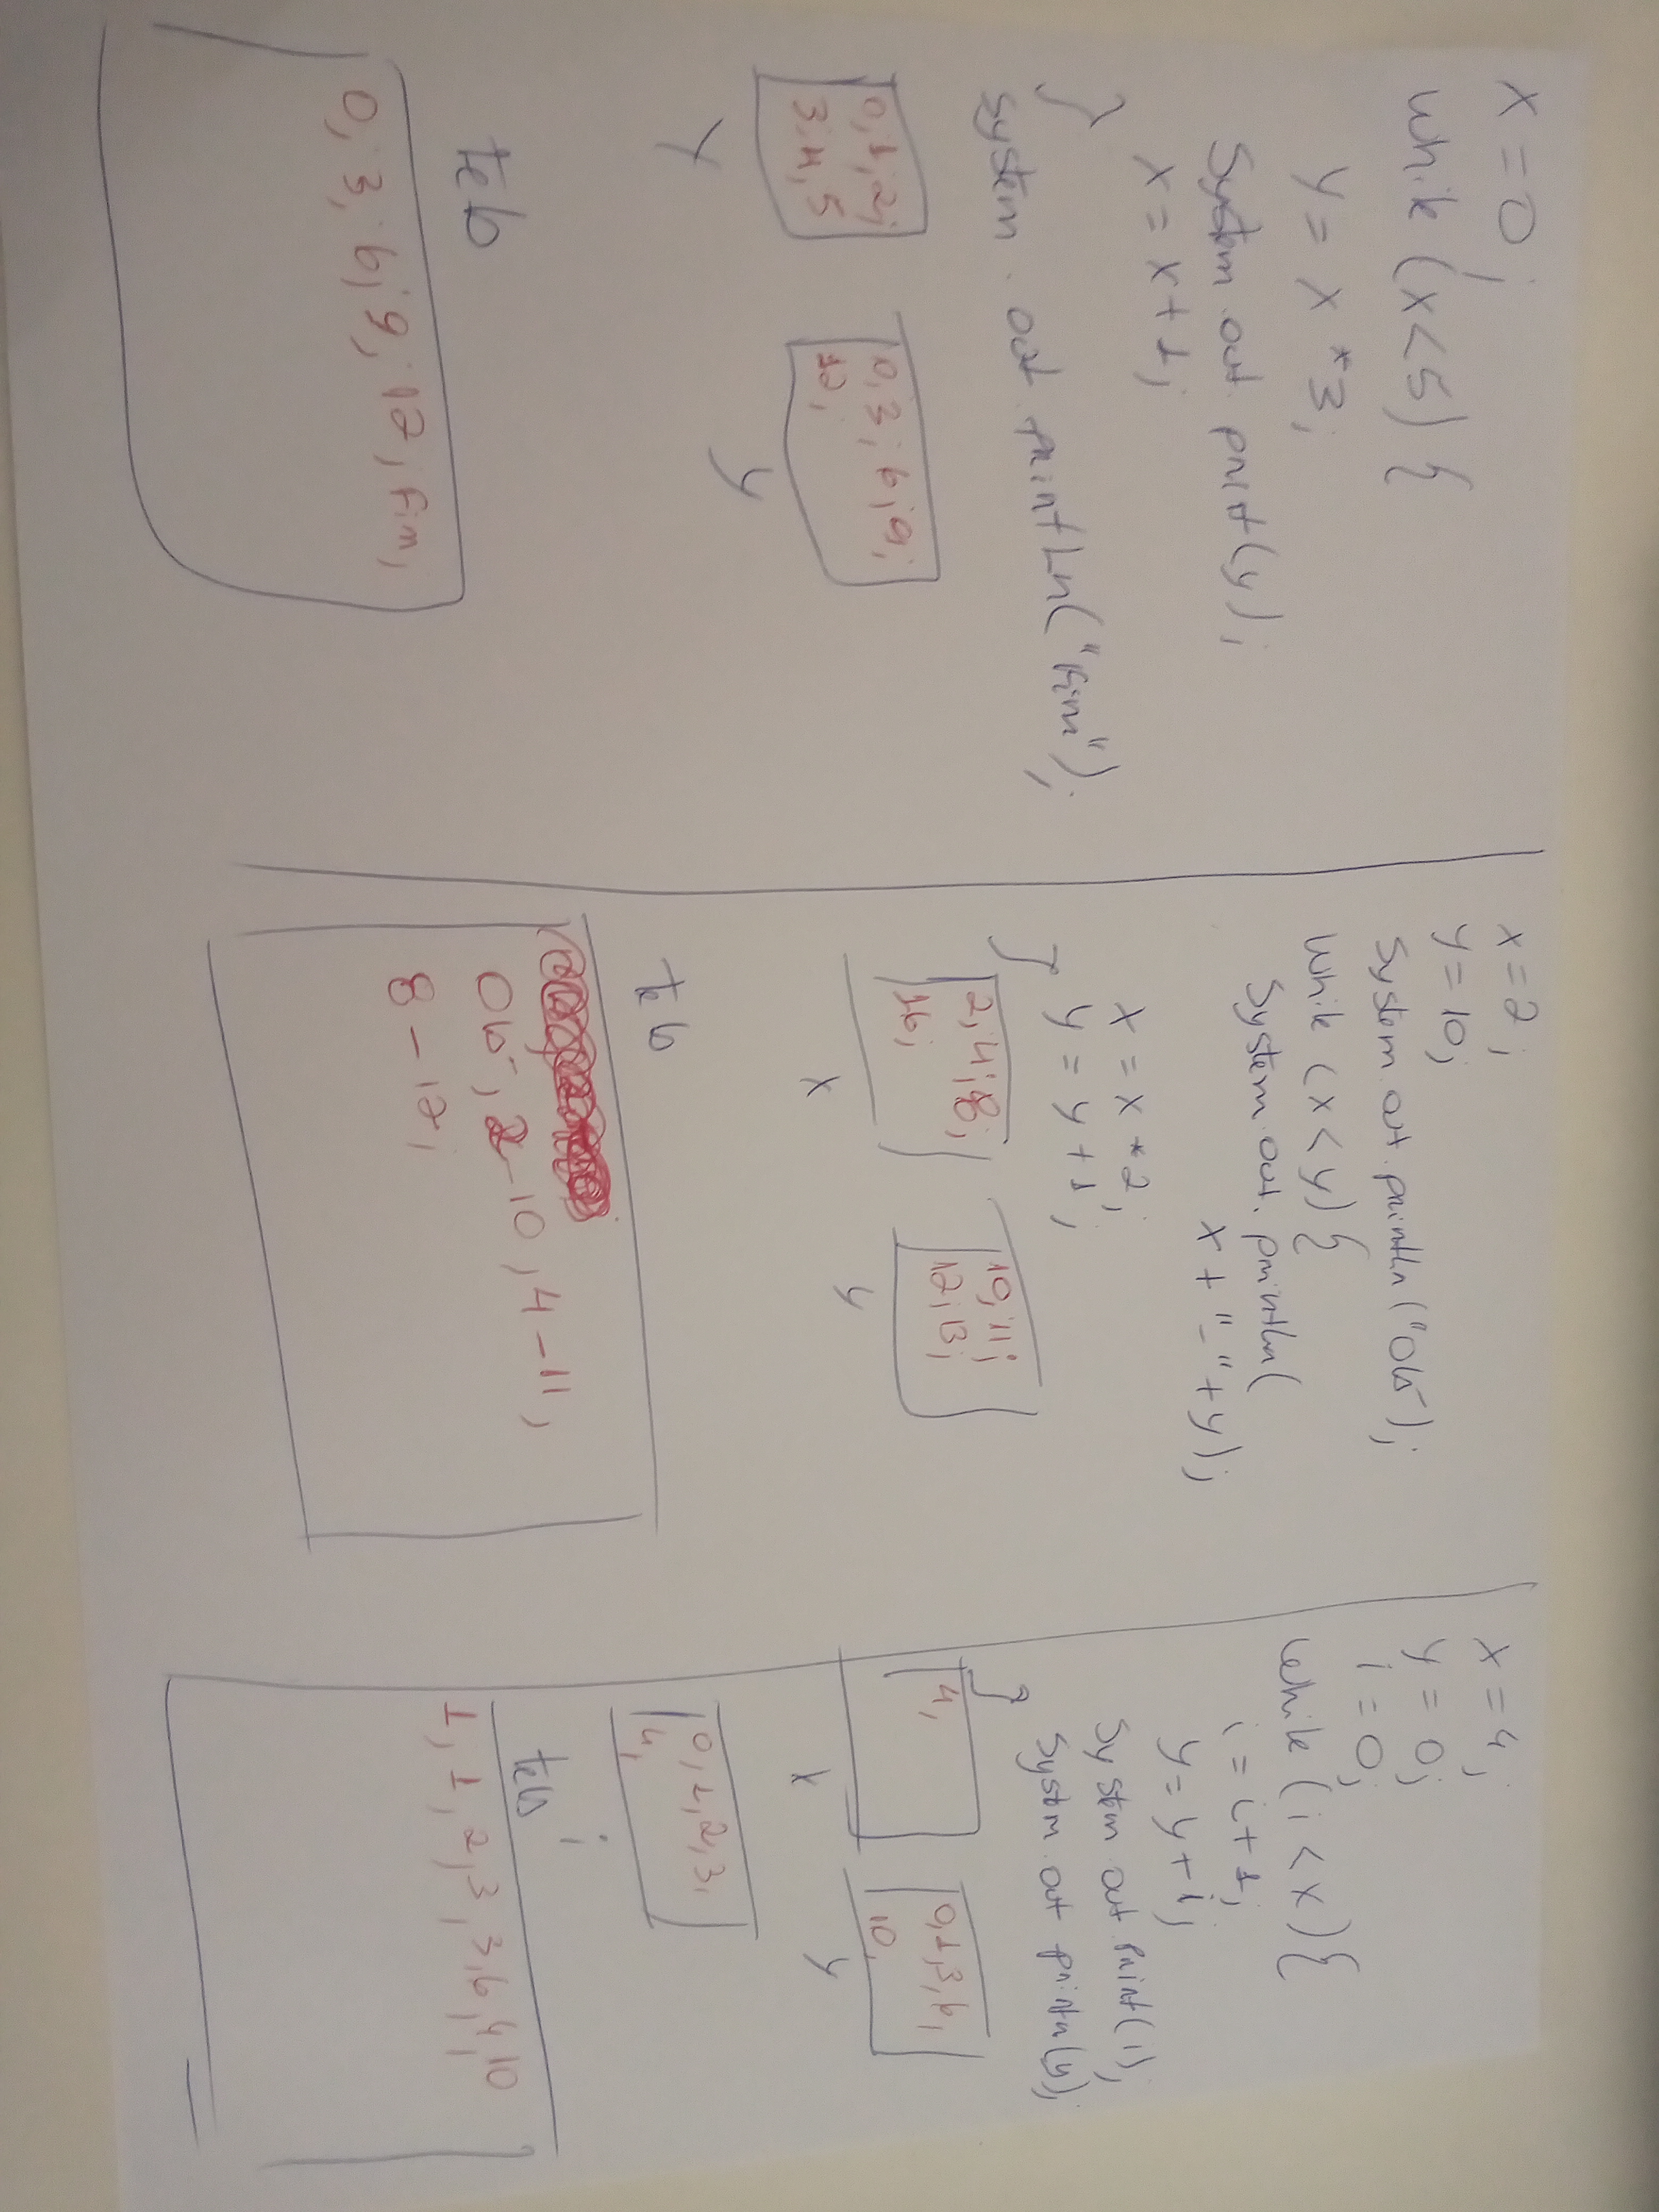 x = 0;
while (x<5) {
y = x *3;
System.out.print(y);
x = x+1;
}
System.out.printLn("Fim");
0, 1, 2;
3, 4, 5
Y
0, 3; 6; 9;
12;
y
tela
0; 3; 6; 9; 12; Fim,
x = 2;
y = 10;
System.out.println("Olá");
while (x < y) {
System.out.println(
x + "-" + y);
x = x *2;
y = y +1;
}
2; 4; 8;
16;
x
10, 11;
12; 13;
y
tela
Olá, 2-10, 4-11,
8-12;
x = 4;
y = 0;
i = 0;
while (i < x) {
i = i+1;
y = y+i;
System.out.print(i);
System.out.println(y);
}
4,
x
0,1,3,6,
10,
y
0, 1, 2, 3,
4,
i
tela
1, 1, 2, 3, 3, 6, 4, 10